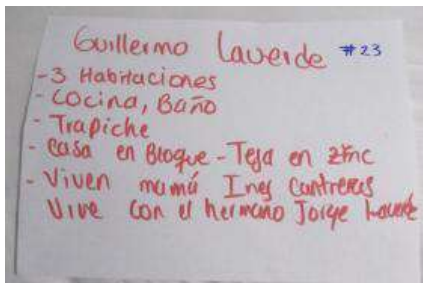 Guillermo Laverde #23
- 3 Habitaciones
- Cocina, Baño
- Trapiche
- Casa en Bloque - Teja en zinc
- Viven mamá Ines Contreras
Vive con el hermano Jorge Laverde